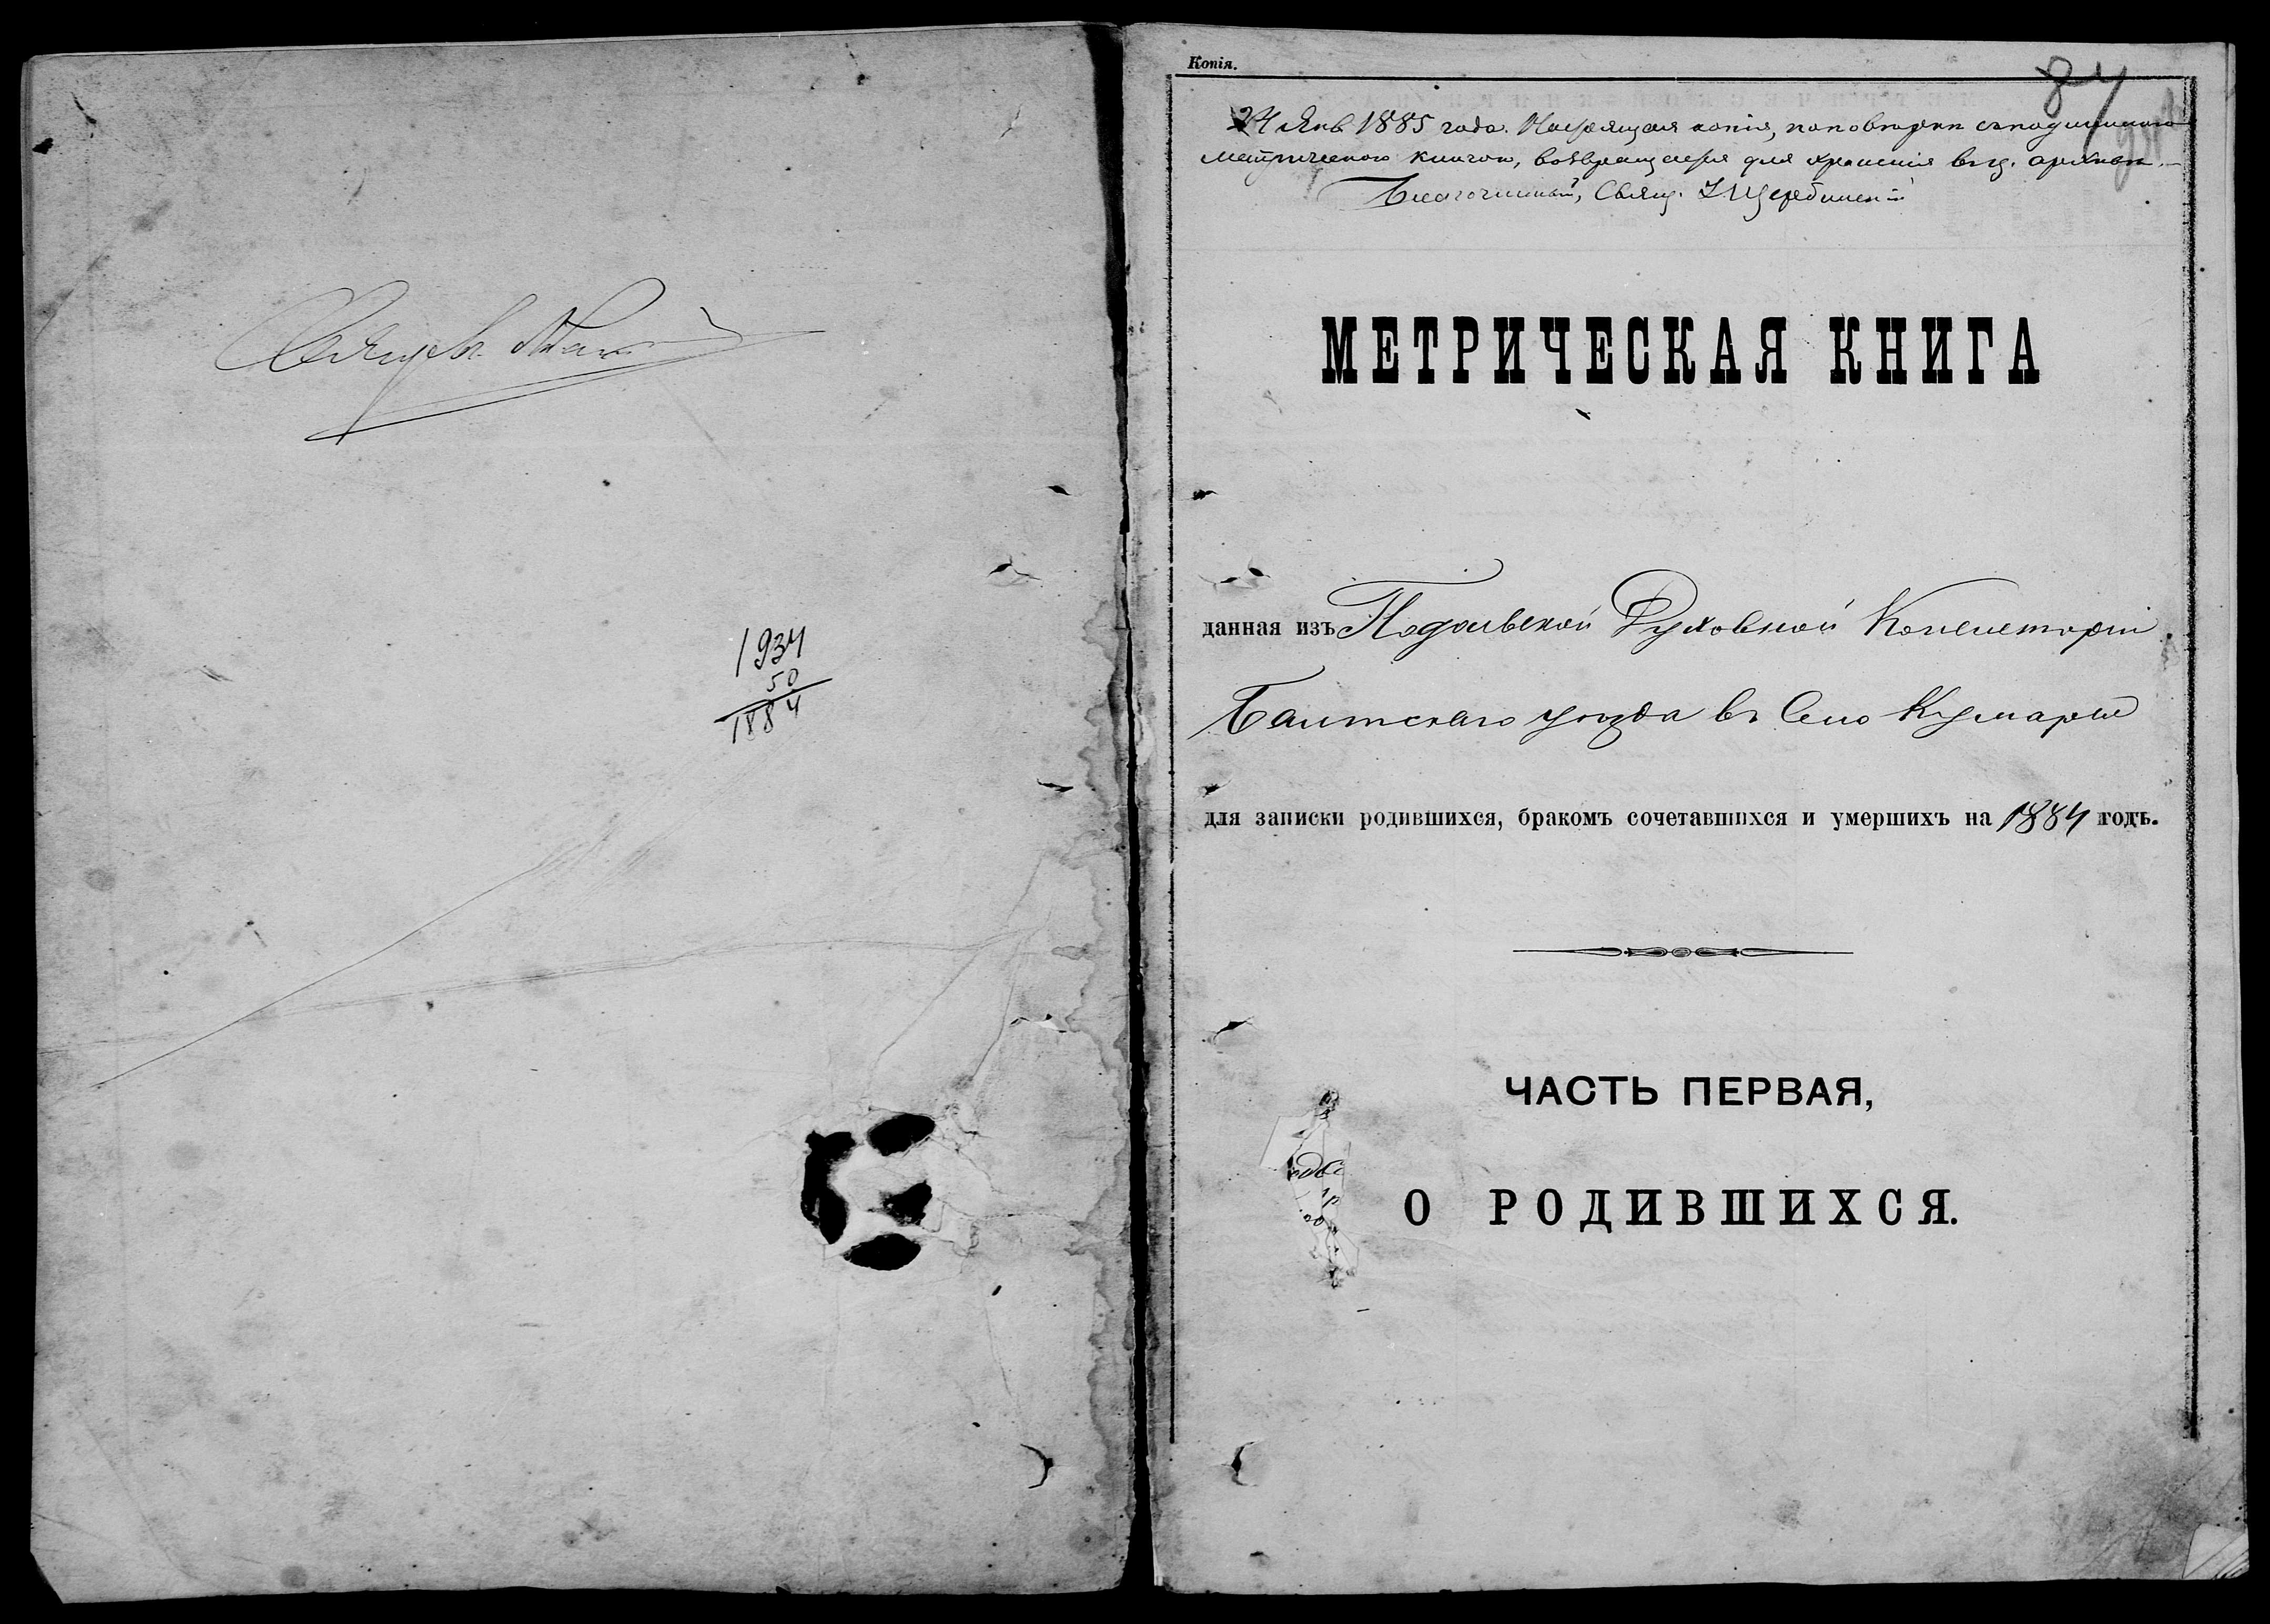 Священ.
1934
50
1884
Копія.
84
24 Янв 1885 года. Настоящая копія, по повѣркѣ съ подлинною
метрическою книгою, возвращается для храненія въ ц. архивѣ.
Благочинный, Свящ. І Щербинскій
МЕТРИЧЕСКАЯ КНИГА
данная изъ Подольской Духовной Консисторіи
Балтскаго уѣзда въ Село Кумары
для записки родившихся, бракомъ сочетавшихся и умершихъ на 1884 годъ.
ЧАСТЬ ПЕРВАЯ,
О РОДИВШИХСЯ.